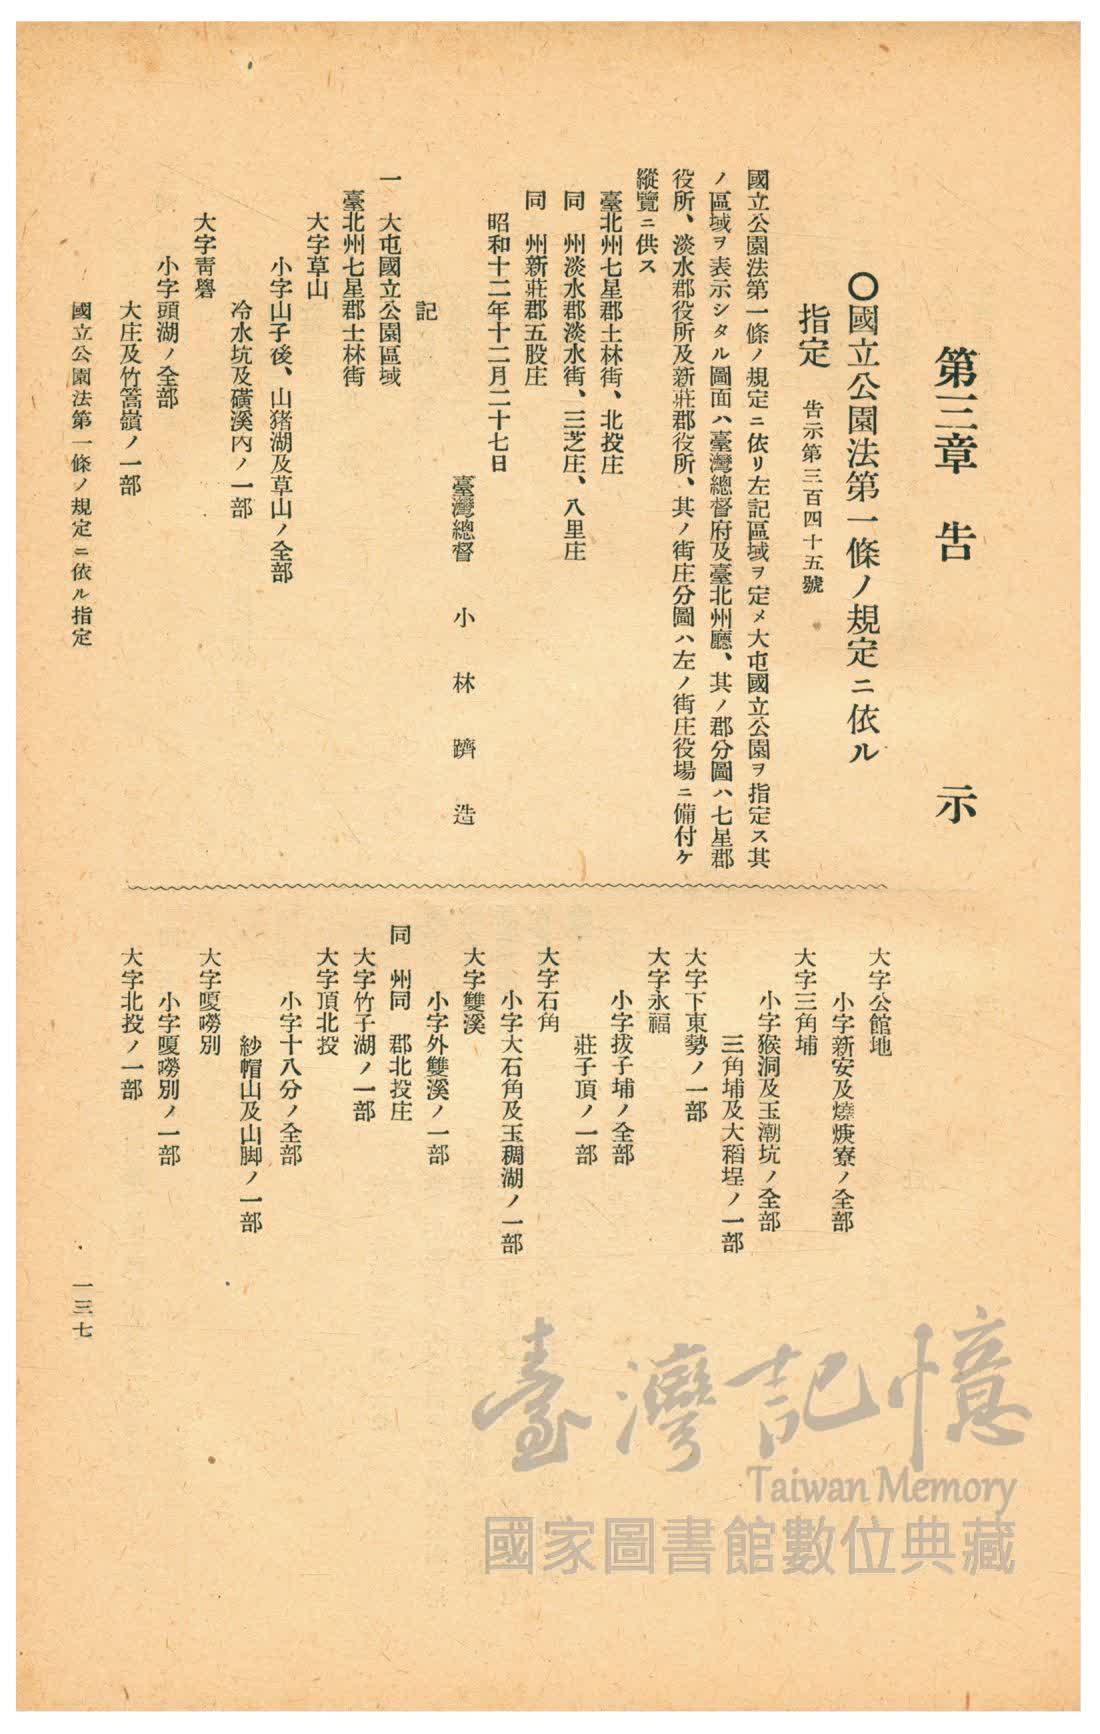 第三章 告 示
〇國立公園法第一條ノ規定ニ依ル
指定 告示第三百四十五號
國立公園法第一條ノ規定ニ依リ左記區域ヲ定メ大屯國立公園ヲ指定ス其
ノ區域ヲ表示シタル圖面ハ臺灣總督府及臺北州廳、其ノ郡分圖ハ七星郡
役所、淡水郡役所及新莊郡役所、其ノ街庄分圖ハ左ノ街庄役場ニ備付ケ
縱覽ニ供ス
臺北州七星郡士林街、北投庄
同 州淡水郡淡水街、三芝庄、八里庄
同 州新莊郡五股庄
昭和十二年十二月二十七日
臺灣總督 小林躋造
記
一 大屯國立公園區域
臺北州七星郡士林街
大字草山
小字山子後、山猪湖及草山ノ全部
冷水坑及磺溪內ノ一部
大字靑礐
小字頭湖ノ全部
大庄及竹篙嶺ノ一部
大字公館地
小字新安及燒焿寮ノ全部
大字三角埔
小字猴洞及玉潮坑ノ全部
三角埔及大稻埕ノ一部
大字下東勢ノ一部
大字永福
小字拔子埔ノ全部
莊子頂ノ一部
大字石角
小字大石角及玉稠湖ノ一部
大字雙溪
小字外雙溪ノ一部
同 州同 郡北投庄
大字竹子湖ノ一部
大字頂北投
小字十八分ノ全部
紗帽山及山脚ノ一部
大字嗄嘮別
小字嗄嘮別ノ一部
大字北投ノ一部
國立公園法第一條ノ規定ニ依ル指定
一三七
臺灣記憶
Taiwan Memory
國家圖書館數位典藏